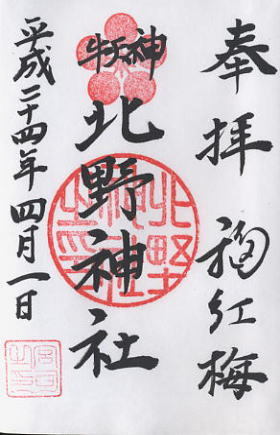 奉拝 紅梅
牛天神
北野神社
平成二十四年四月一日
北野神社之印
宮司之印